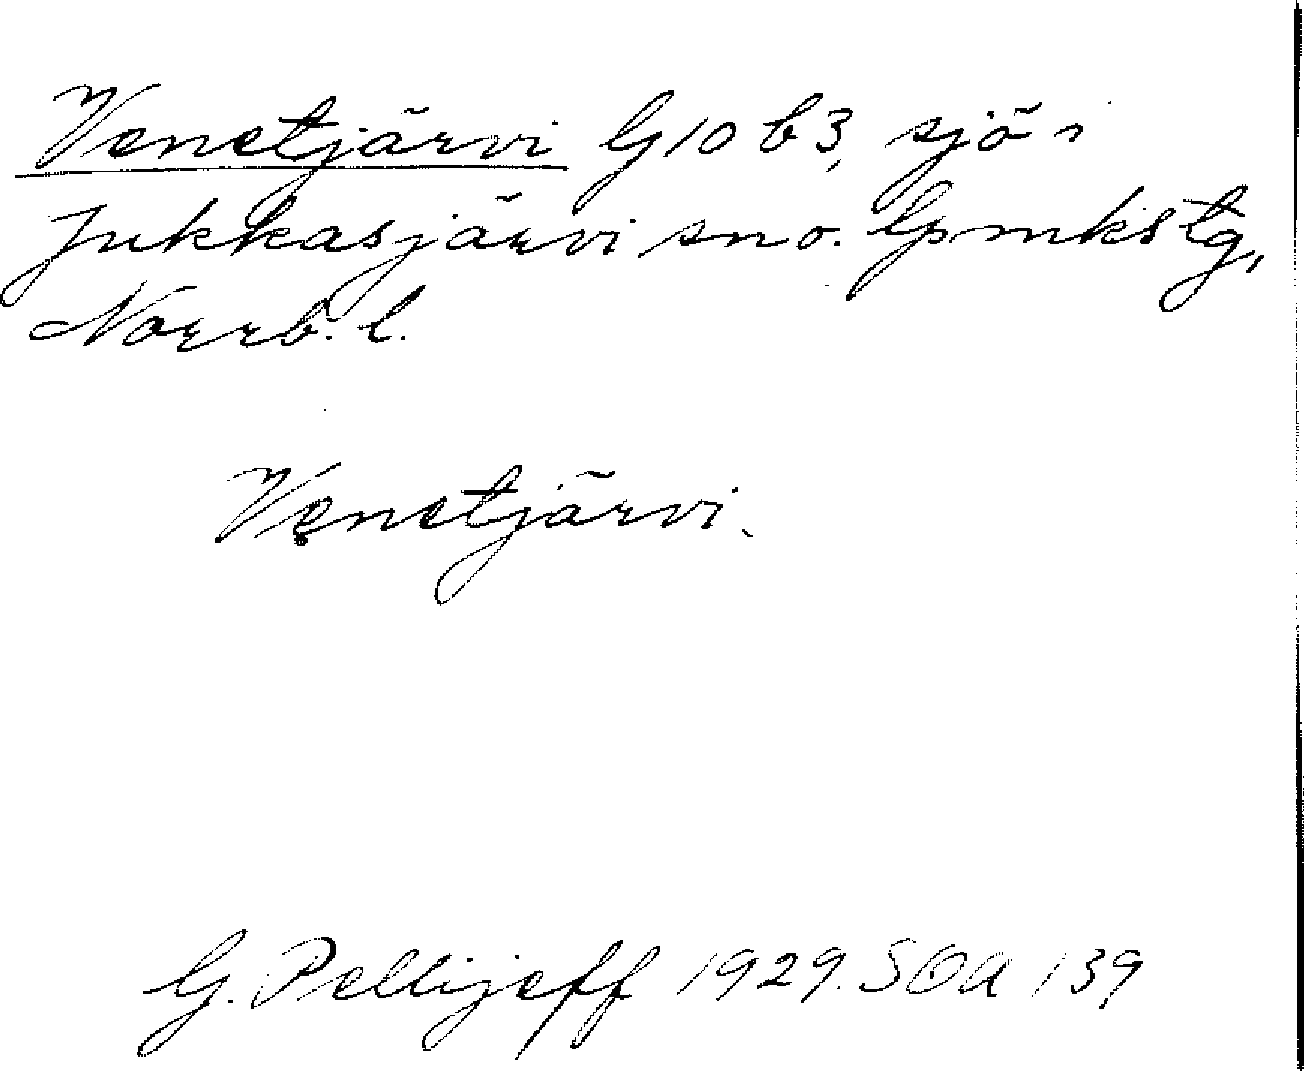 Venetjärvi G10 b3, sjö i
Jukkasjärvi sno. Lpmkstg,
Norrb. l.
Venetjärvi.
G. Pellijeff 1929. SOA 139